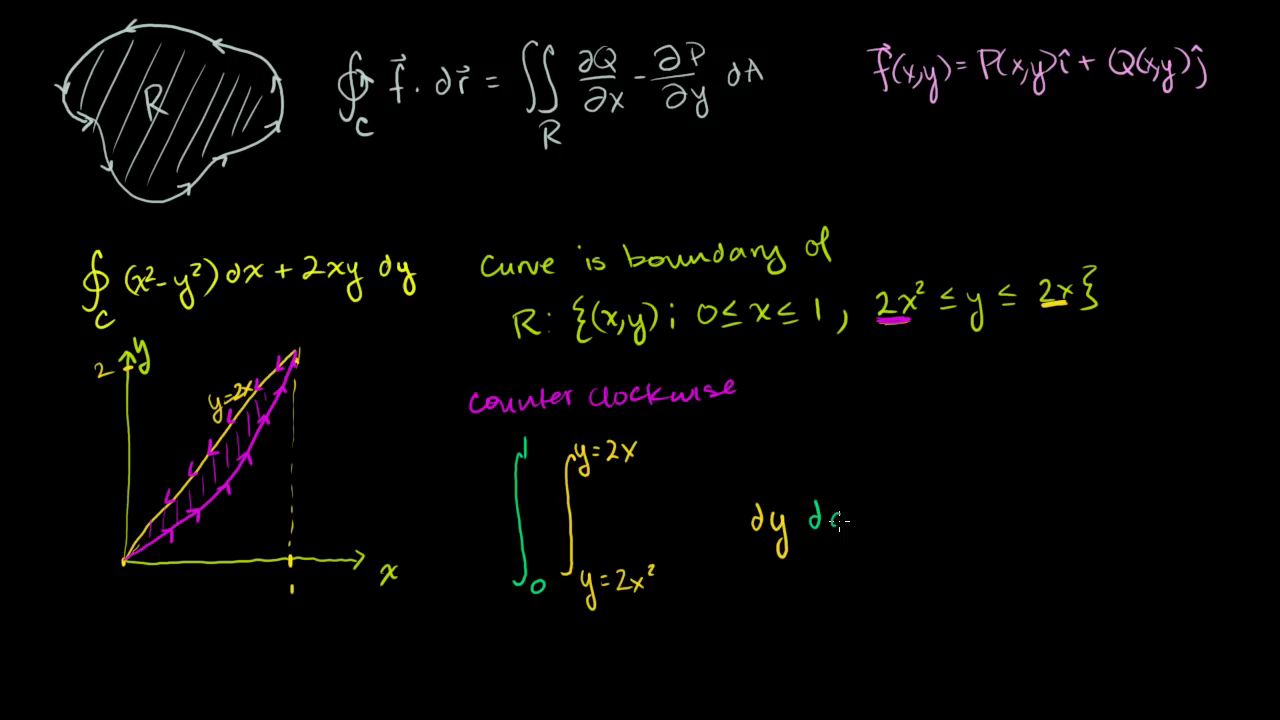 R
∮_C f⃗ · dr⃗ = ∬_R ∂Q/∂x − ∂P/∂y dA
f⃗(x,y) = P(x,y)î + Q(x,y)ĵ
∮_C (x² − y²) dx + 2xy dy
Curve is boundary of
R: {(x,y); 0 ≤ x ≤ 1, 2x² ≤ y ≤ 2x}
counter clockwise
y
2
y=2x
x
1
∫_0^1 ∫_{y=2x²}^{y=2x} dy d